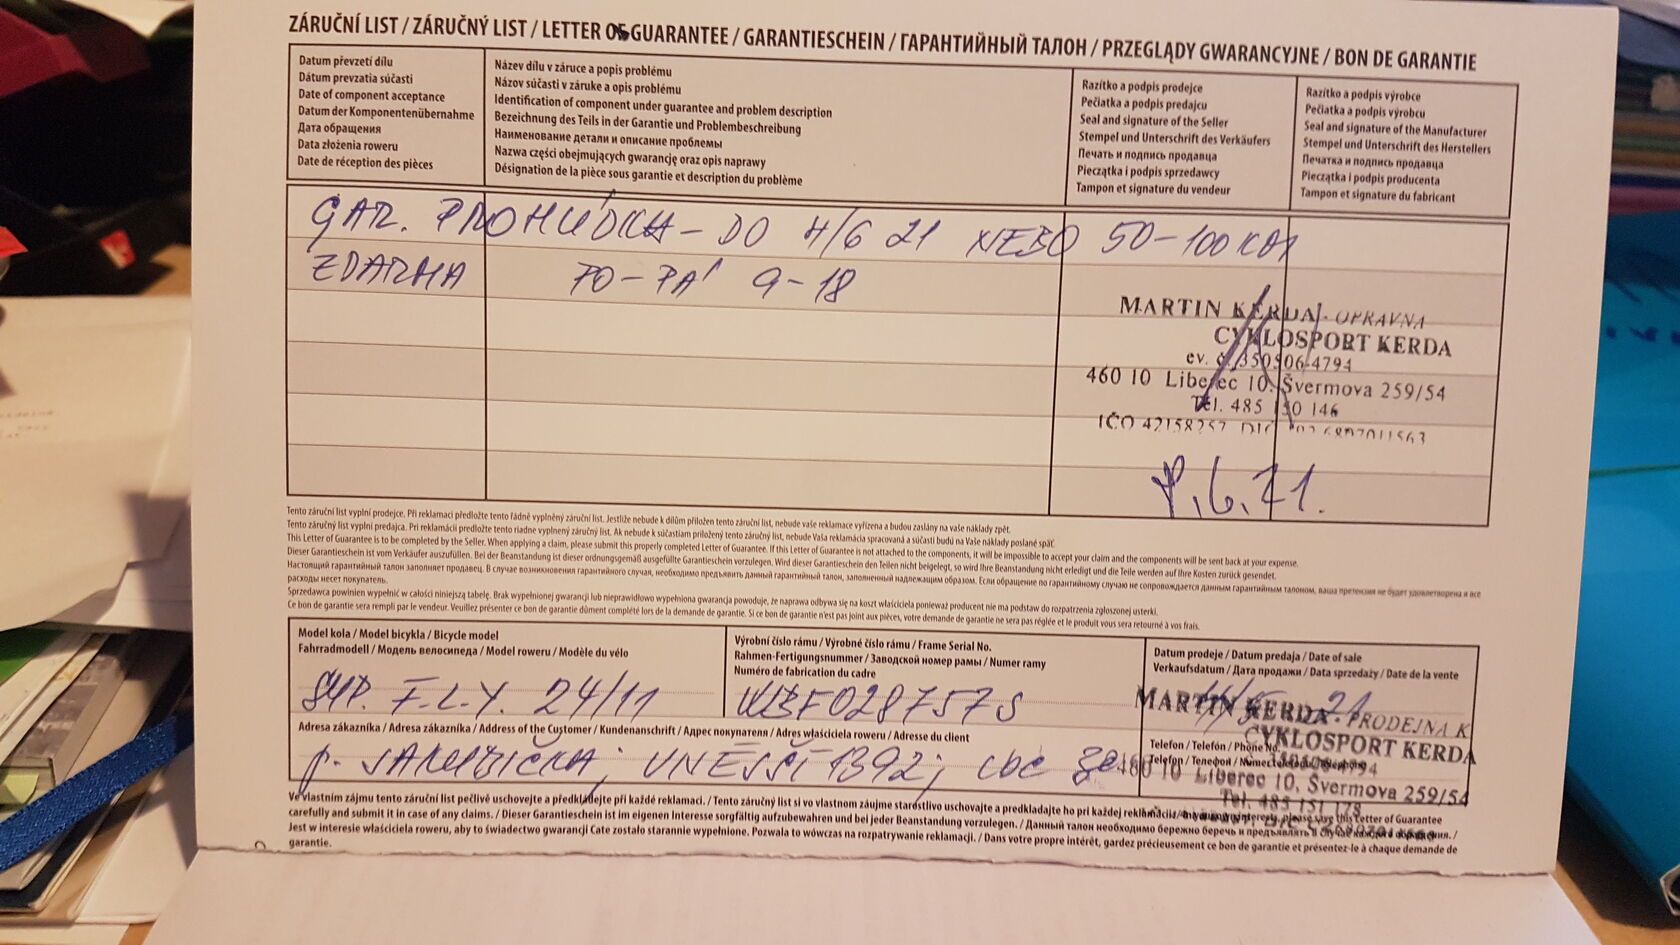 ZÁRUČNÍ LIST / ZÁRUČNÝ LIST / LETTER OF GUARANTEE / GARANTIESCHEIN / ГАРАНТИЙНЫЙ ТАЛОН / PRZEGLĄDY GWARANCYJNE / BON DE GARANTIE
Datum převzetí dílu
Dátum prevzatia súčasti
Date of component acceptance
Datum der Komponentenübernahme
Дата обращения
Data złożenia roweru
Date de réception des pièces
Název dílu v záruce a popis problému
Názov súčasti v záruke a opis problému
Identification of component under guarantee and problem description
Bezeichnung des Teils in der Garantie und Problembeschreibung
Наименование детали и описание проблемы
Nazwa części obejmujących gwarancję oraz opis naprawy
Désignation de la pièce sous garantie et description du problème
Razítko a podpis prodejce
Pečiatka a podpis predajcu
Seal and signature of the Seller
Stempel und Unterschrift des Verkäufers
Печать и подпись продавца
Pieczątka i podpis sprzedawcy
Tampon et signature du vendeur
Razítko a podpis výrobce
Pečiatka a podpis výrobcu
Seal and signature of the Manufacturer
Stempel und Unterschrift des Herstellers
Печатка и подпись продавца
Pieczątka i podpis producenta
Tampon et signature du fabricant
GAR. PROHLÍDKA - DO 4/6 21 NEBO 50-100 KM
ZDARMA PO-PÁ 9-18
MARTIN KERDA - OPRAVNA
CYKLOSPORT KERDA
ev. č. 350506-4794
460 10 Liberec 10, Švermova 259/54
Tel. 485 130 146
IČO 42158257 DIČ
6.21.
Tento záruční list vyplní prodejce. Při reklamaci předložte tento řádně vyplněný záruční list. Jestliže nebude k dílům přiložen tento záruční list, nebude vaše reklamace vyřízena a budou zaslány na vaše náklady zpět.
Tento záručný list vyplní predajca. Pri reklamácii predložte tento riadne vyplnený záručný list. Ak nebude k súčastiam priložený tento záručný list, nebude Vaša reklamácia spracovaná a súčasti budú na Vaše náklady poslané späť.
This Letter of Guarantee is to be completed by the Seller. When applying a claim, please submit this properly completed Letter of Guarantee. If this Letter of Guarantee is not attached to the components, it will be impossible to accept your claim and the components will be sent back at your expense.
Dieser Garantieschein ist vom Verkäufer auszufüllen. Bei der Beanstandung ist dieser ordnungsgemäß ausgefüllte Garantieschein vorzulegen. Wird dieser Garantieschein den Teilen nicht beigelegt, so wird Ihre Beanstandung nicht erledigt und die Teile werden auf Ihre Kosten zurück gesendet.
Настоящий гарантийный талон заполняет продавец. В случае возникновения гарантийного случая, необходимо предъявить данный гарантийный талон, заполненный надлежащим образом. Если обращение по гарантийному случаю не сопровождается данным гарантийным талоном, ваша претензия не будет удовлетворена и все
расходы несет покупатель.
Sprzedawca powinien wypełnić w całości niniejszą tabelę. Brak wypełnionej gwarancji lub nieprawidłowo wypełniona gwarancja powoduje, że naprawa odbywa się na koszt właściciela ponieważ producent nie ma podstaw do rozpatrzenia zgłoszonej usterki.
Ce bon de garantie sera rempli par le vendeur. Veuillez présenter ce bon de garantie dûment complété lors de la demande de garantie. Si ce bon de garantie n'est pas joint aux pièces, votre demande de garantie ne sera pas réglée et le produit vous sera retourné à vos frais.
Model kola / Model bicykla / Bicycle model
Fahrradmodell / Модель велосипеда / Model roweru / Modèle du vélo
F.L.Y. 24/11
Výrobní číslo rámu / Výrobné číslo rámu / Frame Serial No.
Rahmen-Fertigungsnummer / Заводской номер рамы / Numer ramy
Numéro de fabrication du cadre
WBF028757S
Datum prodeje / Datum predaja / Date of sale
Verkaufsdatum / Дата продажи / Data sprzedaży / Date de la vente
21
MARTIN KERDA - PRODEJNA K
CYKLOSPORT KERDA
4794
460 10 Liberec 10, Švermova 259/54
Tel. 485 151 178
Adresa zákazníka / Adresa zákazníka / Address of the Customer / Kundenanschrift / Адрес покупателя / Adres właściciela roweru / Adresse du client
p. JAKUBIČKA; VNĚJŠÍ 1392; LBC 30
Telefon / Telefón / Phone No.
Telefon / Телефон / Numer telefonu / Téléphone
Ve vlastním zájmu tento záruční list pečlivě uschovejte a předkládejte při každé reklamaci. / Tento záručný list si vo vlastnom záujme starostlivo uschovajte a predkladajte ho pri každej reklamácii. / In your own interest, please save this Letter of Guarantee
carefully and submit it in case of any claims. / Dieser Garantieschein ist im eigenen Interesse sorgfältig aufzubewahren und bei jeder Beanstandung vorzulegen. / Данный талон необходимо бережно беречь и предъявлять в случае каждого обращения. /
Jest w interesie właściciela roweru, aby to świadectwo gwarancji Cate zostało starannie wypełnione. Pozwala to wówczas na rozpatrywanie reklamacji. / Dans votre propre intérêt, gardez précieusement ce bon de garantie et présentez-le à chaque demande de
garantie.